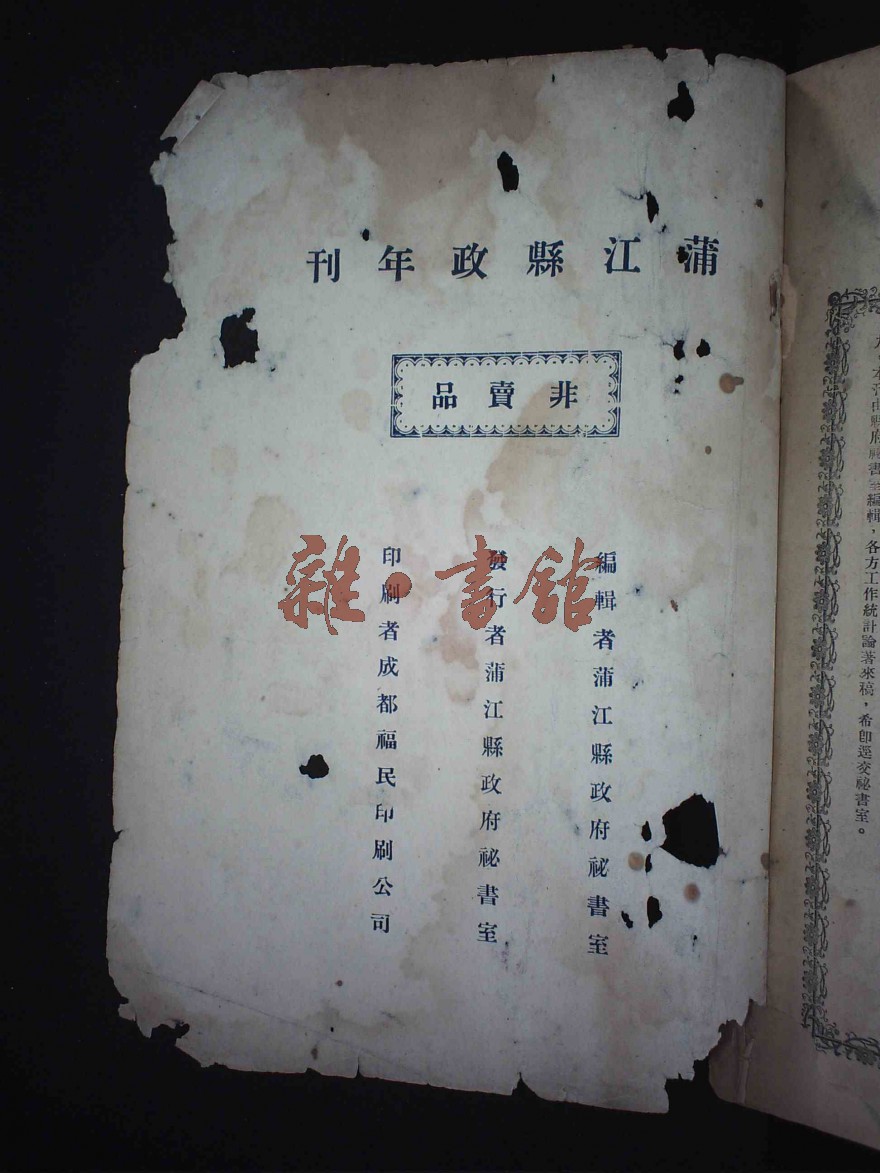 蒲江縣政年刊
非賣品
編輯者蒲江縣政府祕書室
發行者蒲江縣政府祕書室
印刷者成都福民印刷公司
雜·書館
府祕書室編輯，各方工作統計論著來稿，希卽逕交祕書室。